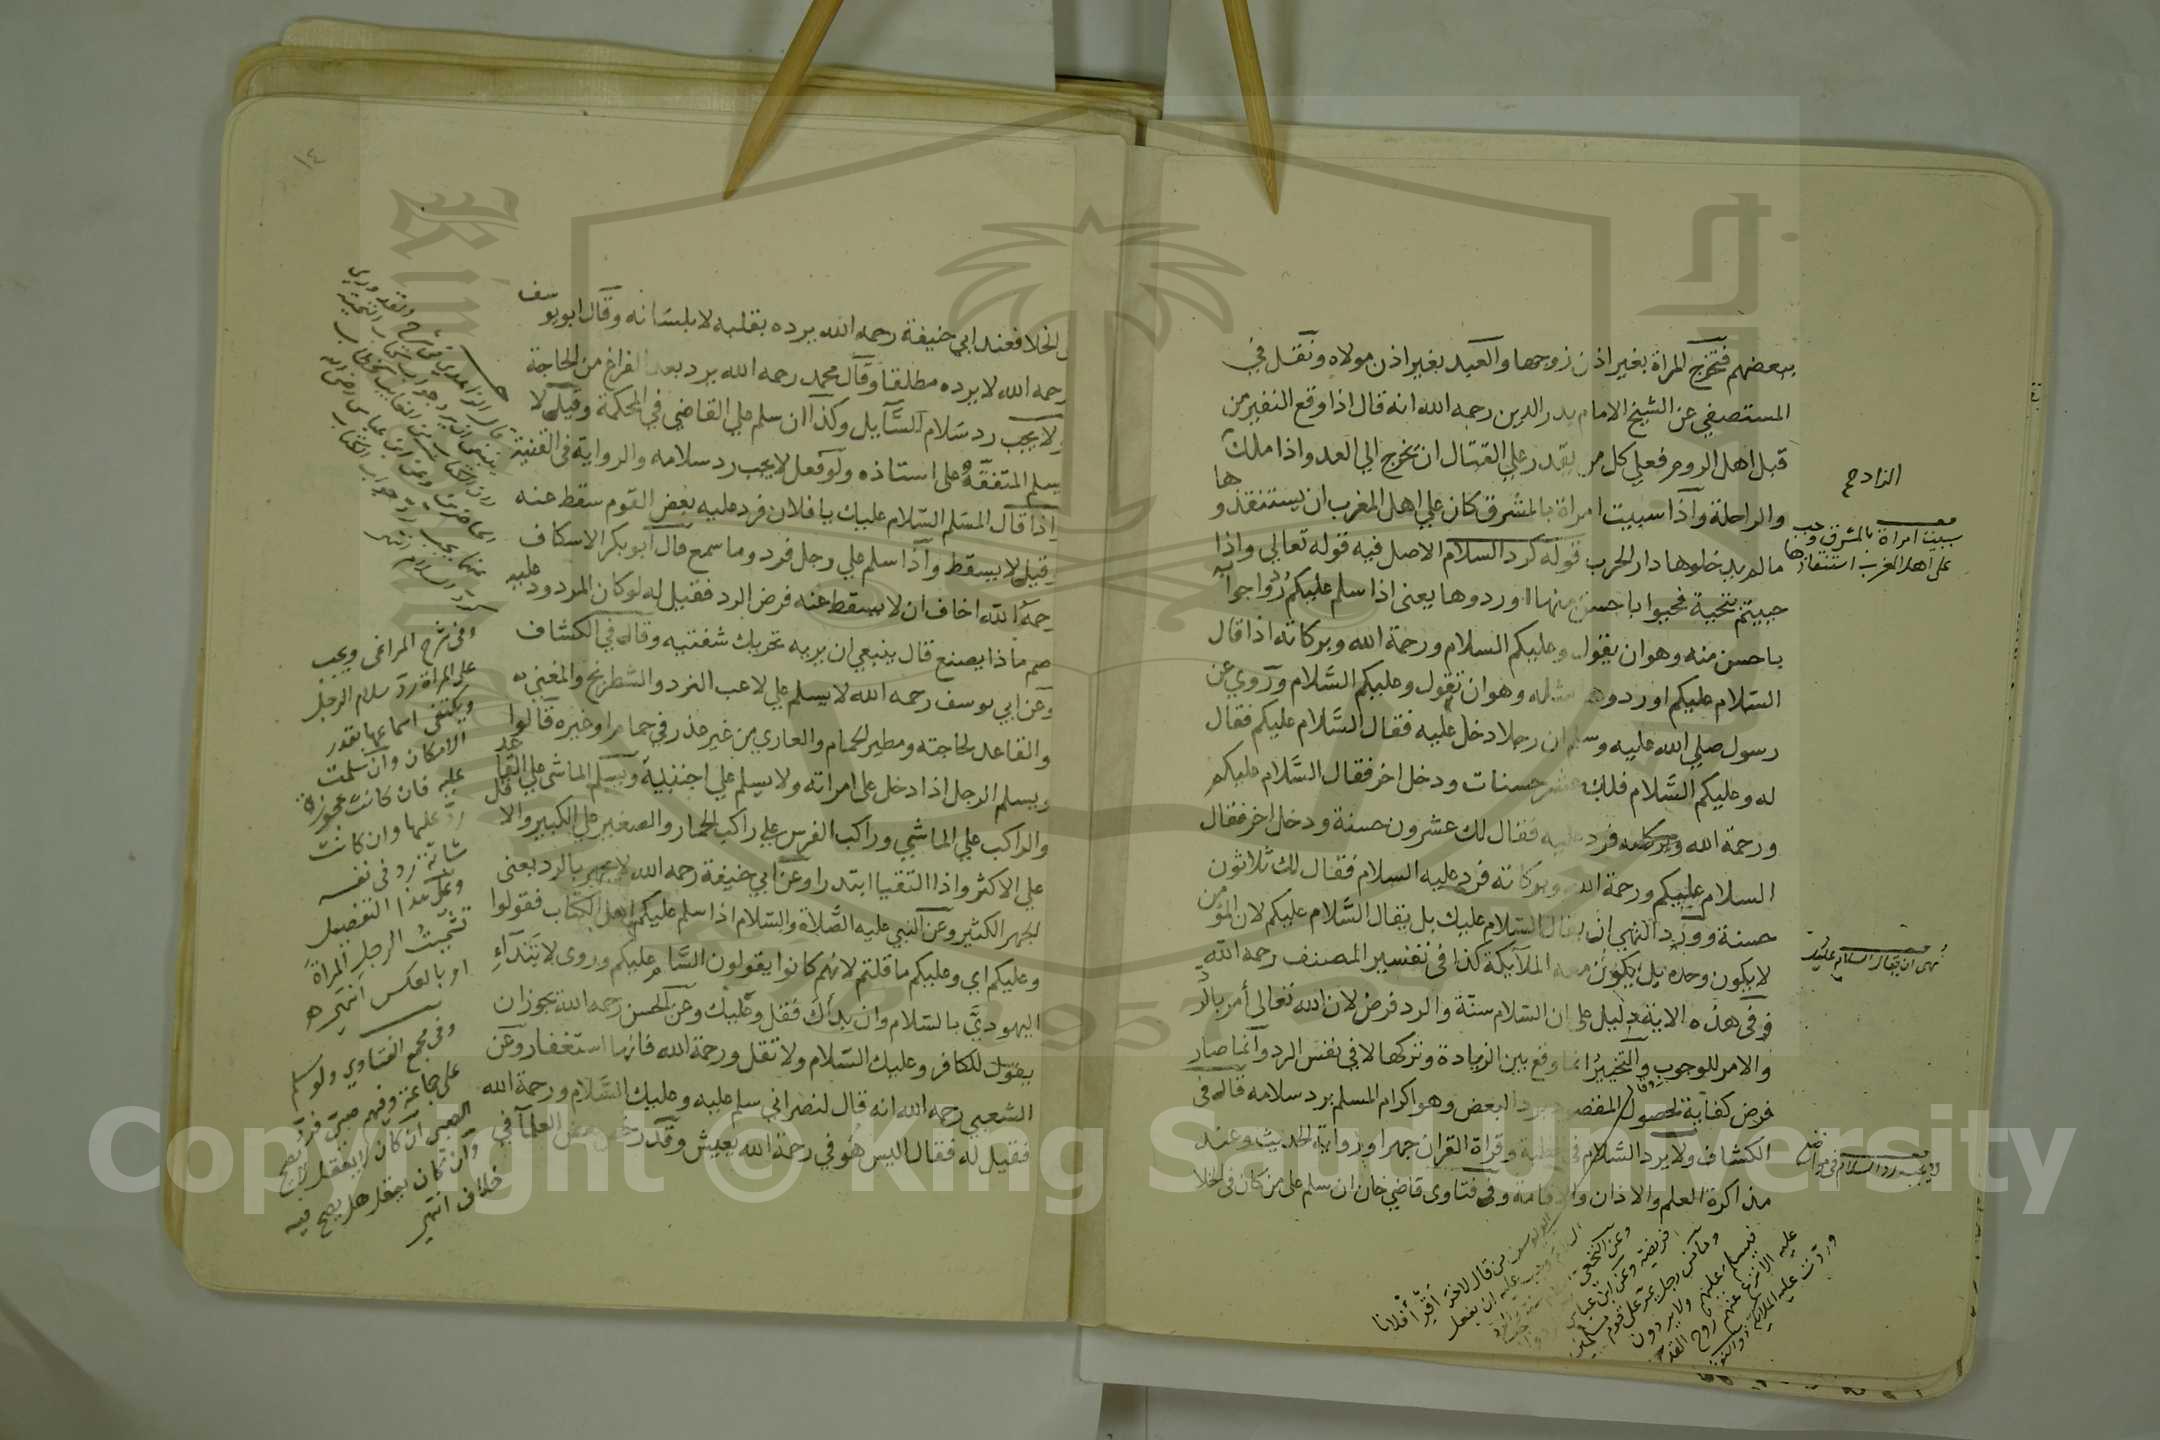 ببعضهم فتخرج المراة بغير اذن زوجها والعبد بغير اذن مولاه ونقل في
المستصفي عن الشيخ الامام بدر الدين رحمه الله انه قال اذا وقع النفير من
قبل اهل الروم فعلي كل من يقدر علي القتال ان يخرج الي العدو اذا ملك
والراحلة وآذا سبيت امراة بالمشرق كان علي اهل المغرب ان يستنقذوها
مالم يدخلوها دار الحرب قوله كرد السلام الاصل فيه قوله تعالي واذا
حييتم بتحية فحيوا باحسن منها اوردوها يعنى اذا سلم عليكم ردوا جوابه
باحسن منه وهو ان يقول وعليكم السلام ورحمة الله وبركاته اذا قال
السلام عليكم اوردوها بمثله وهو ان تقول وعليكم السلام وروي عن
رسول صلي الله عليه وسلم ان رجلا دخل عليه فقال السلام عليكم فقال
له وعليكم السلام فلك عشر حسنات ودخل اخر فقال السلام عليكم
ورحمة الله وبركاته فرد عليه فقال لك عشرون حسنة ودخل اخر فقال
السلام عليكم ورحمة الله وبركاته فرد عليه السلام فقال لك ثلاثون
حسنة وورد النهي ان يقال السلام عليك بل يقال السلام عليكم لان المؤمن
لا يكون وحده بل يكون معه الملآيكة كذا في تفسير المصنف رحمه الله
وفي هذه الاية دليل على ان السلام سنة والرد فرض لان الله تعالى أمر بالرد
والامر للوجوب والتخيير انما وقع بين الزيادة وتركها لا في نفس الرد وانما صار
فرض كفاية لحصول المقصود برد البعض وهو اكرام المسلم برد سلامه قاله في
الكشاف ولا يرد السلام في الخطبة وقراة القران جهرا ورواية الحديث وعند
مذاكرة العلم والاذان والاقامة وفي فتاوى قاضي خان ان سلم على من كان في الخلا
الزاد صح
سبيت امراة بالمشرق وجب
على اهل المغرب استنقاذها
نهى ان يقال السلام عليك
لا يجب رد السلام في مواضع
من قال لاخر أقرأ فلانا
وجب عليه ان يفعل
وعن النخعي
فريضة وعن ابن عباس
وما من رجل يمر على قوم مسلمين
فيسلم عليهم ولا يردون
عليه الا نزع عنهم روح القدس
وردت عليه الملائكة
١٤
الخلا فعند ابي حنيفة رحمه الله يرده بقلبه لا بلسانه وقال ابو يوسف
رحمه الله لا يرده مطلقا وقال محمد رحمه الله يرد بعد الفراغ من الحاجة
ولا يجب رد سلام السآيل وكذا ان سلم علي القاضي في المحكمة وقيل لا
يسلم المتفقه على استاذه ولو فعل لا يجب رد سلامه والرواية في القنية
واذا قال المسلم السلام عليك يا فلان فرد عليه بعض القوم سقط عنه
وقيل لا يسقط وآذا سلم علي رجل فرد وما سمع قال ابو بكر الاسكاف
رحمه الله اخاف ان لا يسقط عنه فرض الرد فقيل له لو كان المردود عليه
اصم ماذا يصنع قال ينبغي ان يريه تحريك شفتيه وقال في الكشاف
وعن ابي يوسف رحمه الله لا يسلم علي لاعب النرد والشطرنج والمغني
والقاعد لحاجته ومطير الحمام والعاري من غير عذر في حمام او غيره قالوا
ويسلم الرجل اذا دخل على امراته ولا يسلم علي اجنبية ويسلم الماشي علي القاعد
والراكب علي الماشي وراكب الفرس علي راكب الحمار والصغير علي الكبير والاقل
علي الاكثر واذا التقيا ابتدرا وعن ابي حنيفة رحمه الله لا يجهر بالرد يعنى
الجهر الكثير وعن النبي عليه الصلاة والسلام اذا سلم عليكم اهل الكتاب فقولوا
وعليكم اي وعليكم ما قلتم لانهم كانوا يقولون السام عليكم وروى لا يتدآء
اليهودي بالسلام وان بدأك فقل وعليك وعن الحسن رحمه الله يجوز ان
يقول للكافر وعليك السلام ولا تقل ورحمة الله فانها استغفار وعن
الشعبي رحمه الله انه قال لنصراني سلم عليه وعليك السلام ورحمة الله
فقيل له فقال اليس هو في رحمة الله يعيش وقد رخص بعض العلمآ في
وفي شرح المراغي ويجب
على المراة رد سلام الرجل
ويكتفى اسماعها بقدر
الامكان وان سلمت
عليه فان كانت عجوزة
رد عليها وان كانت
شابة رد في نفسه
وعلى هذا التفصيل
تشميت الرجل المراة
او بالعكس انتهى
وفي مجمع الفتاوي ولو سلم
على جماعة وفيهم صبي فرد
الصبي ان كان لا يعقل لا يصح
وان كان يعقل هل يصح فيه
خلاف انتهى
Copyright © King Saud University
1957